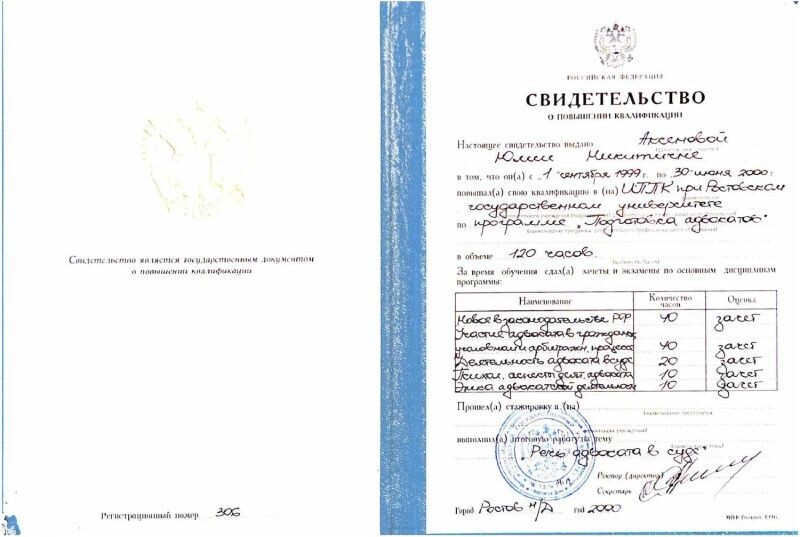 Свидетельство является государственным документом
о повышении квалификации
Регистрационный номер 306
РОССИЙСКАЯ ФЕДЕРАЦИЯ
СВИДЕТЕЛЬСТВО
О ПОВЫШЕНИИ КВАЛИФИКАЦИИ
Настоящее свидетельство выдано Аксеновой
Юлии Никитичне
в том, что он(а) с „1" сентября 1999 г. по „30" июня 2000 г.
повышал(а) свою квалификацию в (на) ИППК при Ростовском
государственном университете
по программе „Подготовка адвокатов"
в объеме 120 часов.
За время обучения сдал(а) зачеты и экзамены по основным дисциплинам
программы:
Наименование Количество часов Оценка
Новое в законодательстве РФ 40 зачет
Участие адвоката в граждан,
уголовном и арбитражн. процессе 40 зачет
Деятельность адвоката в суде 20 зачет
Психол. аспекты деят. адвоката 10 зачет
Этика адвокатской деятельности 10 зачет
Прошел(а) стажировку в (на)
выполнил(а) итоговую работу на тему
„Речь адвоката в суде"
Ректор (директор)
Секретарь
Город Ростов н/Д год 2000